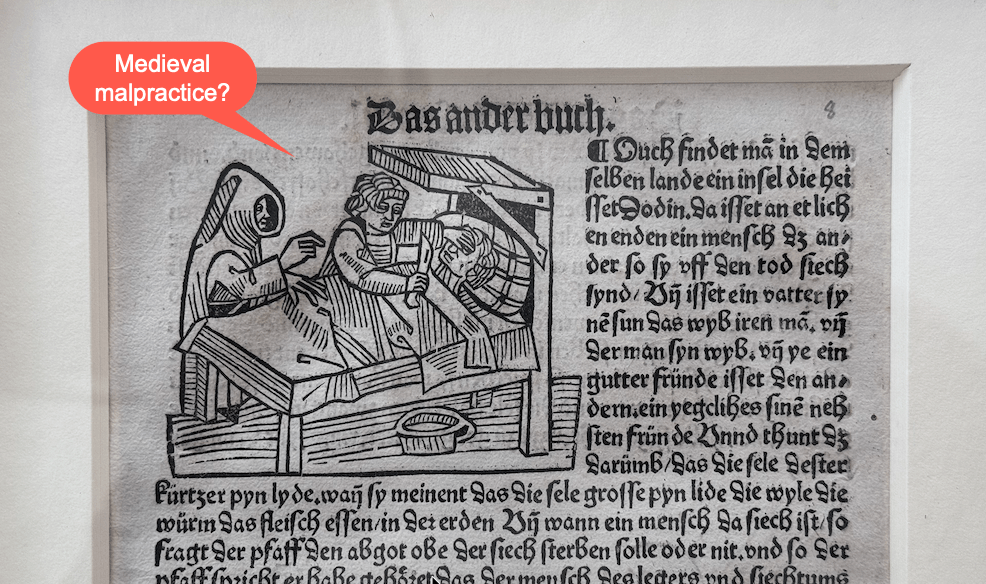 Medieval
malpractice?
Das ander buch.
8
¶ Ouch findet mā in dem
selben lande ein insel die hei
sset Dodin. da isset an etlich
en enden ein mensch dz an⸗
der so sy vff den tod siech
synd/ Vn̄ isset ein vatter sy
nē sun das wyb iren mā. vn̄
der man syn wyb. vn̄ ye ein
gutter fründe isset den an⸗
dern. ein yegclihes sinē neh
sten frün de Vnnd thunt dz
darümb/ das die sele dester
kürtzer pyn lyde. wan̄ sy meinent das die sele grosse pyn lide die wyle die
würm das fleisch essen/ in der erden Vn̄ wann ein mensch da siech ist/ so
fragt der pfaff den abgot obe der siech sterben solle oder nit. vnd so der
pfaff spricht er habe gehöret das der mensch des legers vnd siechtums